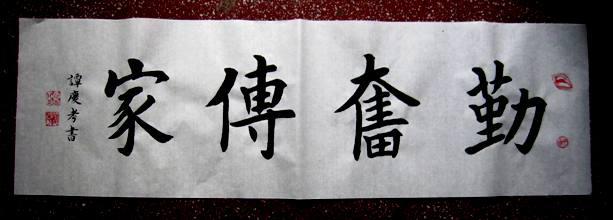 勤奮傳家
譚慶考書